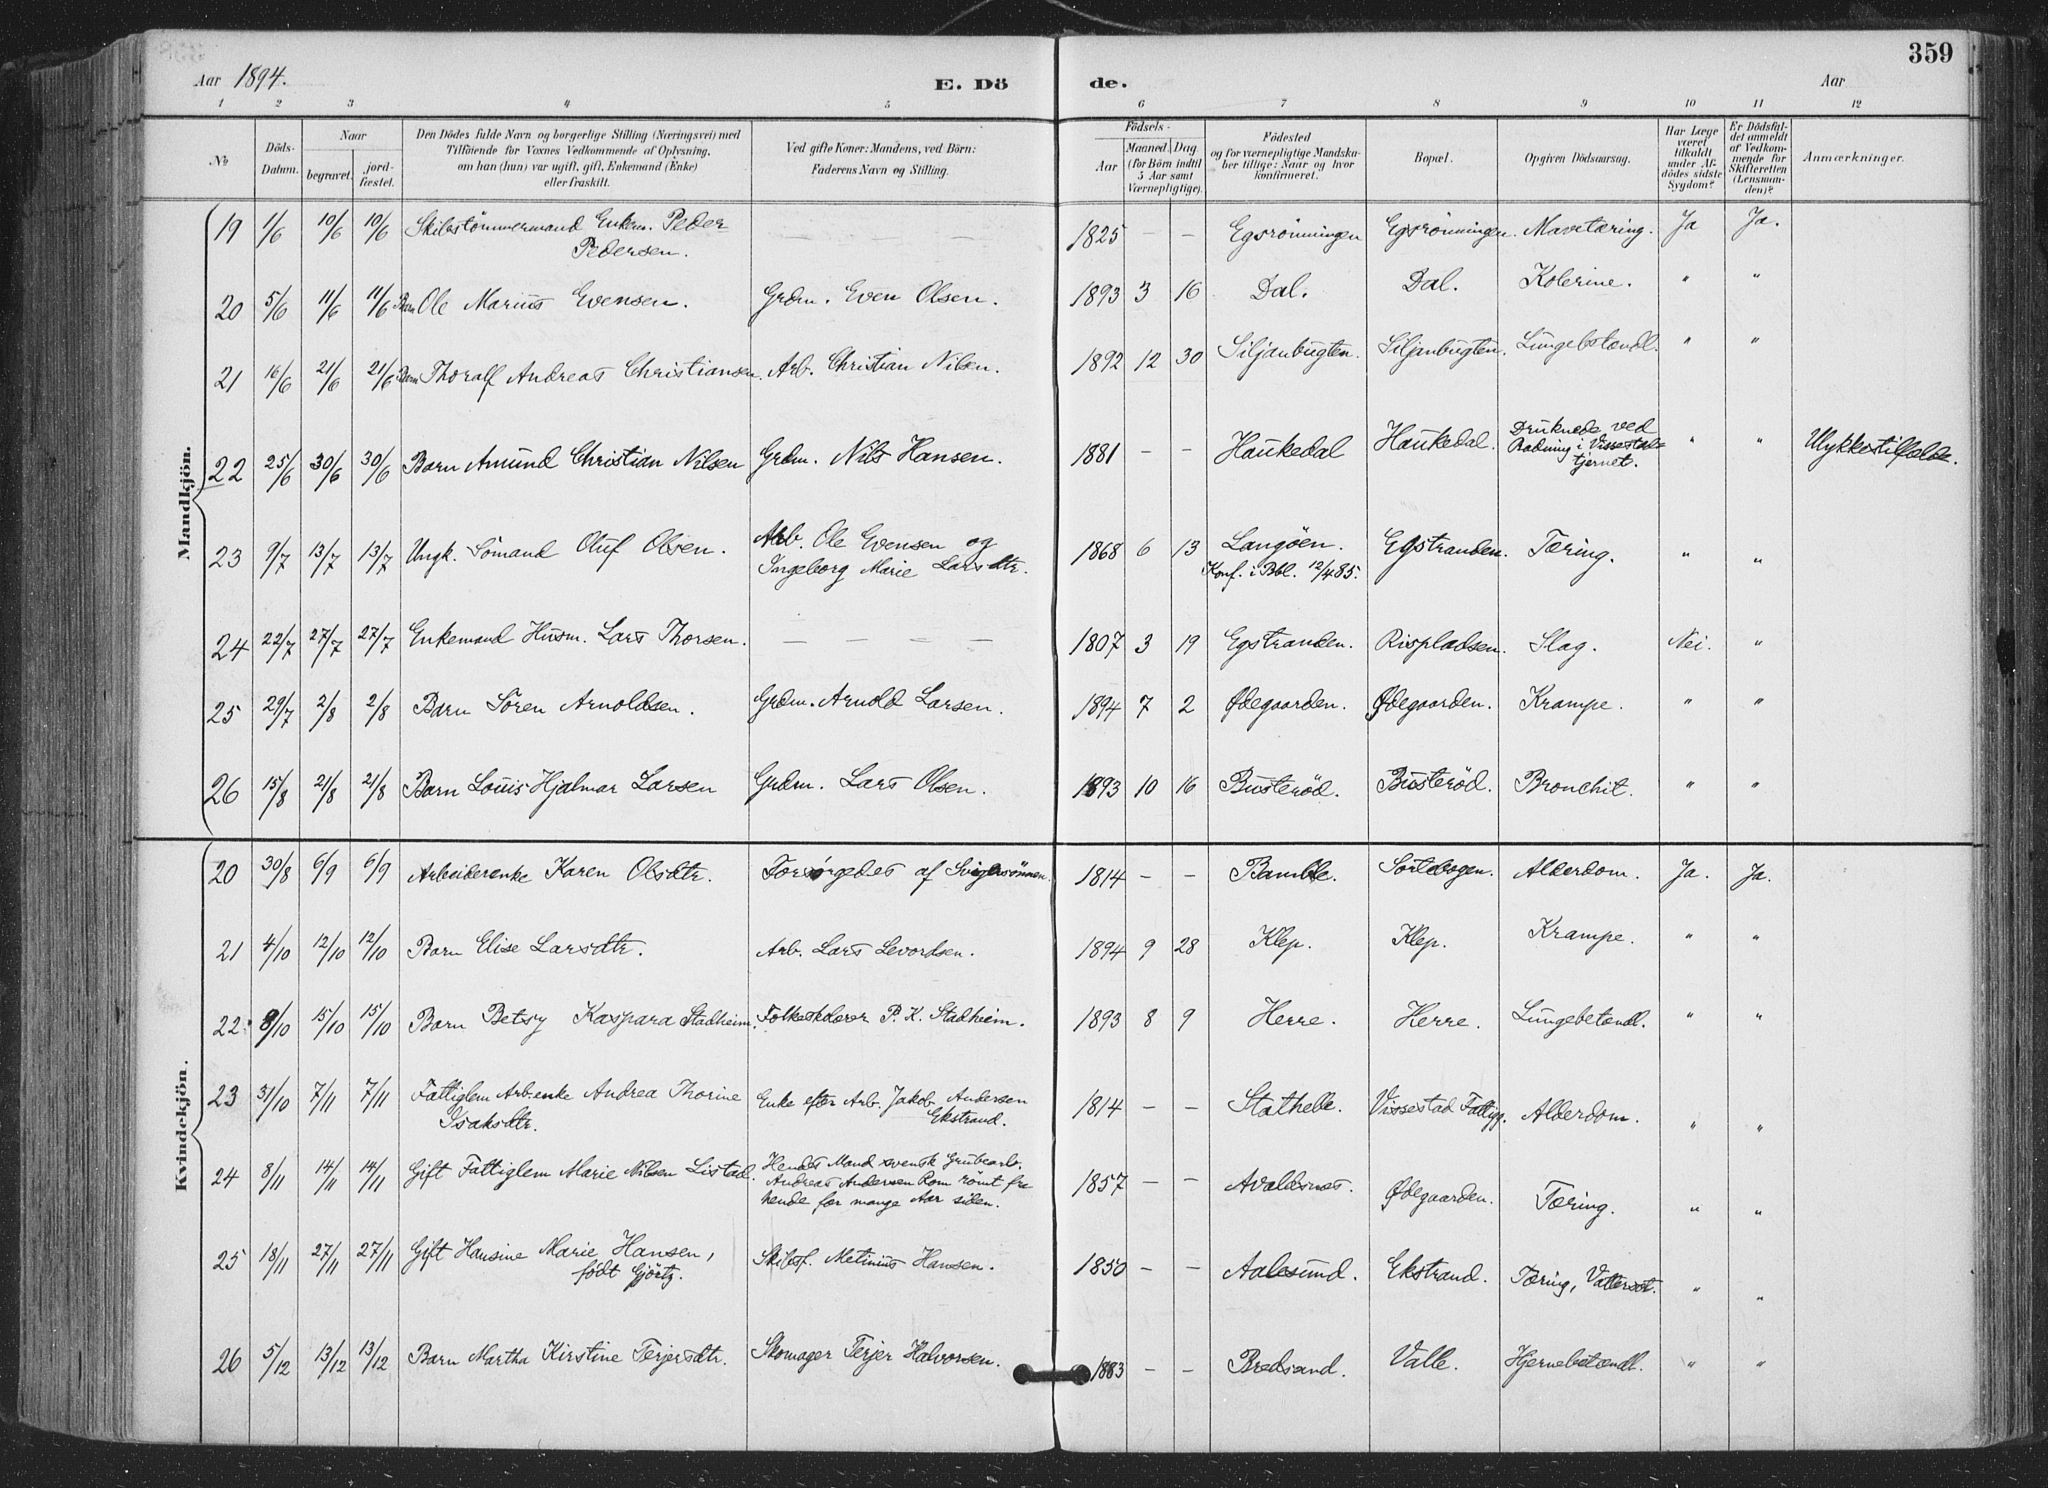 359
Aar 1894. E. Dö de. Aar
1 2 3 4 5 6 7 8 9 10 11 12
No
Döds-
Datum.
Naar
begravet.
jord-
fæstet.
Den Dödes fulde Navn og borgerlige Stilling (Næringsvei) med
Tilföiende for Voxnes Vedkommende af Oplysning,
om han (hun) var ugift, gift, Enkemand (Enke)
eller fraskilt.
Ved gifte Koner: Mandens, ved Börn:
Faderens Navn og Stilling.
Födsels-
Aar
Maaned. Dag.
(for Börn indtil
5 Aar samt
Værnepligtige).
Födested
og for værnepligtige Mandska-
ber tillige: Naar og hvor
konfirmeret.
Bopæl.
Opgiven Dödsaarsag.
Har Læge
været
tilkaldt
under Af-
dödes sidste
Sygdom?
Er Dödsfal-
det anmeldt
af Vedkom-
mende for
Skifteretten
(Lensman-
den)?
Anmærkninger.
Mandkjön.
19 1/6 10/6 10/6 Skibstömmermand Enkem. Peder — — 1825 — — Egsrönningen Egsrönningen. Mavetæring. Ja Ja.
Pedersen.
20 5/6 11/6 11/6 Barn Ole Marius Evensen. Grdm. Even Olsen. 1893 3 16 Dal. Dal. Kolerine. " "
21 16/6 21/6 21/6 Barn Thoralf Andreas Christiansen. Arb. Christian Nilsen. 1892 12 30 Siljanbugten. Siljanbugten. Lungebetændl. " "
22 25/6 30/6 30/6 Barn Amund Christian Nilsen Grdm. Nils Hansen. 1881 — — Haukedal Haukedal. Druknede ved
Badning i Vissestad-
tjernet. " " Ulykkestilfælde.
23 9/7 13/7 13/7 Ungk. Sömand Oluf Olsen. Arb. Ole Evensen og
Ingeborg Marie Larsdtr. 1868 6 13 Langöen.
Konf. i Bbl. 12/4 85. Egstranden. Tæring. " "
24 22/7 27/7 27/7 Enkemand Husm. Lars Thorsen. — — — — 1807 3 19 Egstranden. Rispladsen. Slag. Nei. "
25 29/7 2/8 2/8 Barn Sören Arnoldsen. Grdm. Arnold Larsen. 1894 7 2 Ødegaarden. Ødegaarden. Krampe. " "
26 15/8 21/8 21/8 Barn Louis Hjalmar Larsen Grdm. Lars Olsen. 1893 10 16 Busteröd. Busteröd. Bronchit. " "
Kvindekjön.
20 30/8 6/9 6/9 Arbeiderenke Karen Olsdtr. Forsörgedes af Svigersönnen. 1814 — — Bamble. Sortebogen. Alderdom. Ja. Ja.
21 4/10 12/10 12/10 Barn Elise Larsdtr. Arb. Lars Levordsen. 1894 9 28 Klep. Klep. Krampe. " "
22 8/10 15/10 15/10 Barn Betsy Kaspara Stadheim. Folkeskolærer P. K. Stadheim. 1893 8 9 Herre. Herre. Lungebetændl. " "
23 31/10 7/11 7/11 Fattiglem Arb.enke Andrea Thorine
Isaksdtr. Enke efter Arb. Jakob Andersen
Ekstrand. 1814 — — Stathelle. Vissestad Fattigg. Alderdom. " "
24 8/11 14/11 14/11 Gift Fattiglem Marie Nilsen Listad. Hendes Mand svensk Grubearb.
Andreas Andersen Rom römt fra
hende for mange Aar siden. 1857 — — Avaldsnes. Ødegaarden. Tæring. " "
25 18/11 27/11 27/11 Gift Hansine Marie Hansen,
födt Gjörtz. Skibsf. Metinius Hansen. 1850 — — Aalesund. Ekstrand. Tæring, Vattersot. " "
26 5/12 13/12 13/12 Barn Martha Kirstine Terjersdtr. Skomager Terjer Halvorsen. 1883 — — Bredsand. Valle. Hjernebetændl. " "